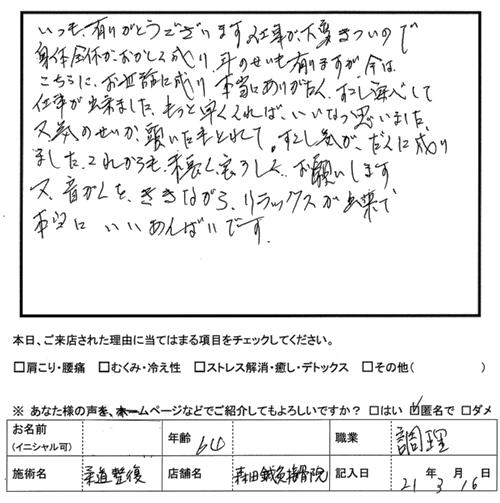 いつも、有りがとうございます仕事が、大変きついので
身体全体がおかしく成り、年のせいも有りますが、今は
こちらに、お世話に成り本当にありがたく、すこし運べして
仕事が出来ました、もっと早くくれば、いいなっ思いました
又、気のせいか、頭いたもとれて。すこし気が、だくに成り
ました、これからも、末長く宜ろしく、お願いします
又、音がくを、ききながら、リラックスが出来て
本当に いいあんばいです。
本日、ご来店された理由に当てはまる項目をチェックしてください。
□肩こり・腰痛 □むくみ・冷え性 □ストレス解消・癒し・デトックス □その他( )
※ あなた様の声を、ホームページなどでご紹介してもよろしいですか? □はい ☑匿名で □ダメ
お名前 (イニシャル可) 年齢 60 職業 調理
施術名 柔道整復 店舗名 森田鍼灸接骨院 記入日 21年3月16日